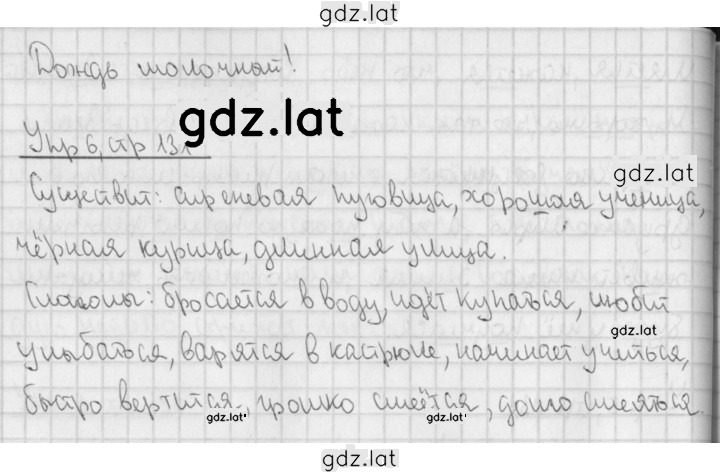 gdz.lat
Дождь молочный!
gdz.lat
Упр 6, стр 131
gdz.lat
Существит: сиреневая пуговица, хорошая ученица,
чёрная курица, длинная улица.
Глаголы: бросается в воду, идёт купаться, любит
gdz.lat
улыбаться, варятся в кастрюле, начинает учиться,
быстро вертится, громко смеётся, долго смеяться
gdz.lat
gdz.lat
gdz.lat